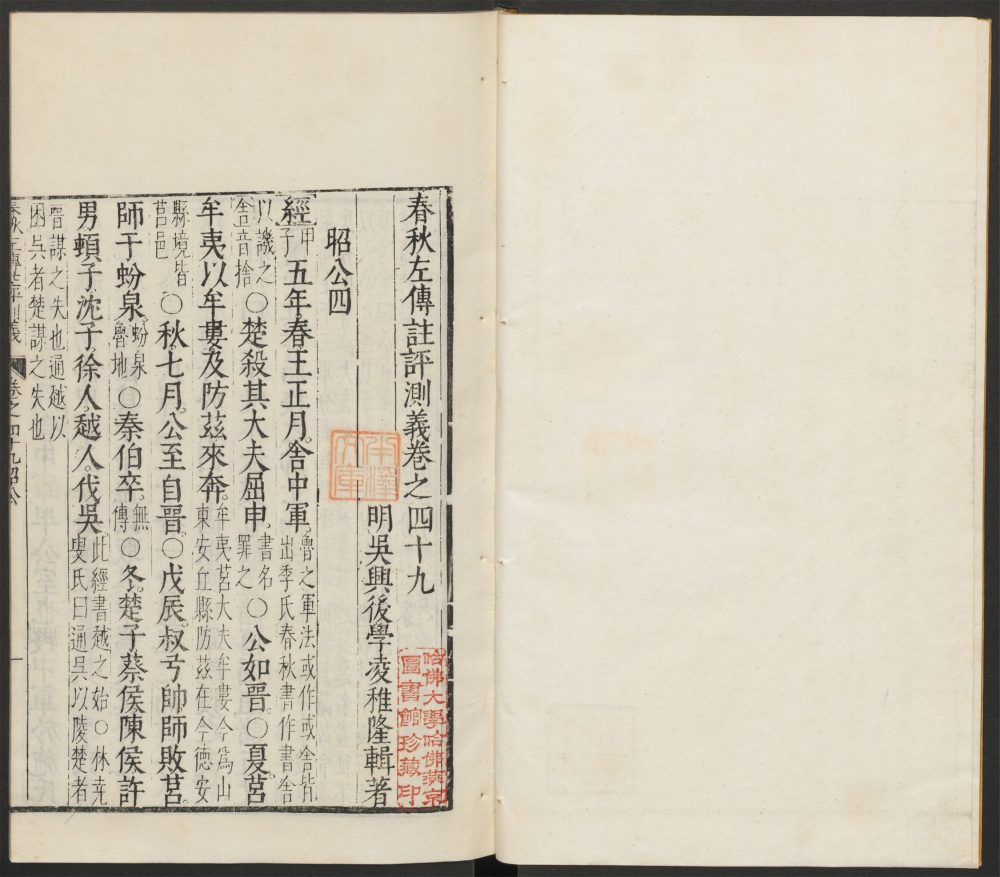 春秋左傳註評測義卷之四十九
明吳興後學凌稚隆輯著
昭公四
經甲子五年春王正月舍中軍魯之軍法或作或舍皆出季氏春秋書作書舍
以譏之舍音捨○楚殺其大夫屈申書名罪之○公如晉○夏莒
牟夷以牟婁及防茲來奔牟夷莒大夫牟婁今爲山東安丘縣防茲在今德安
縣境皆莒邑○秋七月公至自晉○戊辰叔弓帥師敗莒
師于蚡泉蚡泉魯地○秦伯卒無傳○冬楚子蔡侯陳侯許
男頓子沈子徐人越人伐吳此經書越之始○林堯叟氏曰通吳以陵楚者
晉謀之失也通越以困吳者楚謀之失也
春秋左傳註評測義 卷之四十九昭公 一
哈佛大學哈佛燕京
圖書館珍藏印